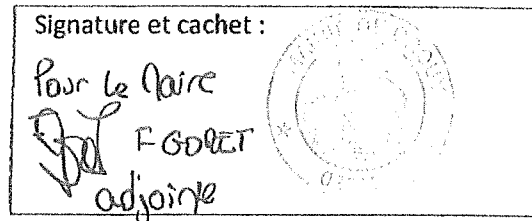 Signature et cachet :
Pour le Maire
F GORET
adjointe